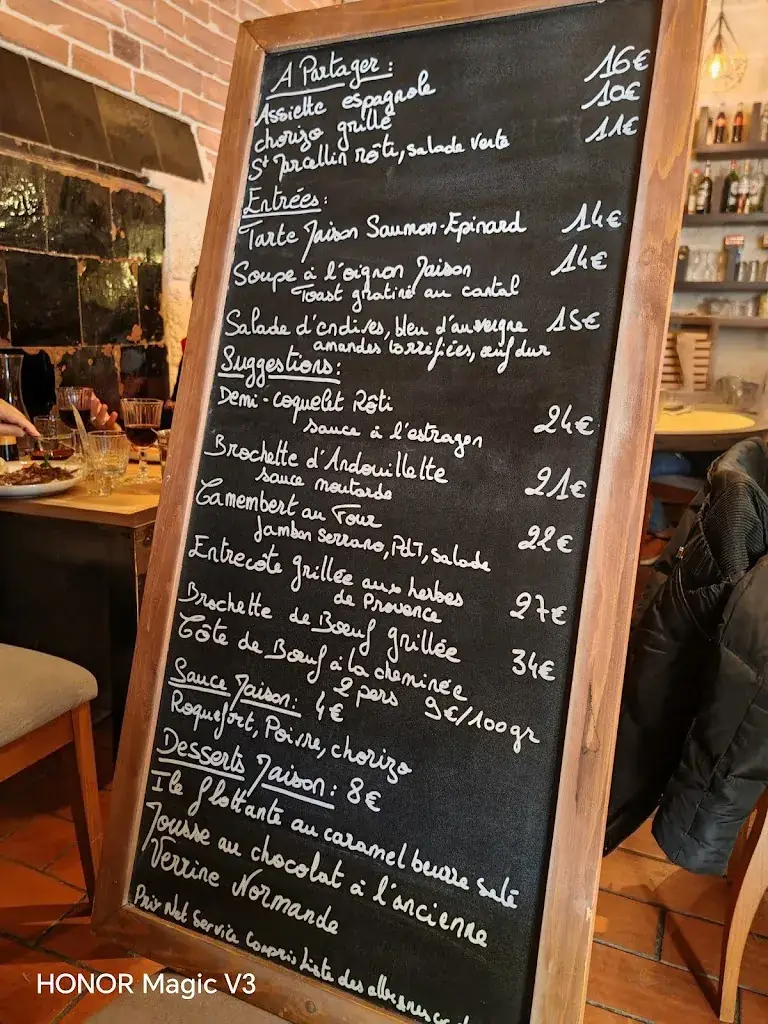 A Partager :
Assiette espagnole 16€
chorizo grillé 10€
St Marcellin rôti, salade verte 11€
Entrées :
Tarte Maison Saumon-Epinard 14€
Soupe à l'oignon Maison 14€
Toast gratiné au cantal
Salade d'endives, bleu d'auvergne 15€
amandes torrifiées, œuf dur
Suggestions :
Demi-coquelet Rôti
sauce à l'estragon 24€
Brochette d'Andouillette
sauce moutarde 21€
Camembert au Four
Jambon serrano, PdT, salade 22€
Entrecôte grillée aux herbes
de Provence 27€
Brochette de Bœuf grillée 34€
Côte de Bœuf à la cheminée
2 pers 9€/100gr
Sauce Maison : 4€
Roquefort, Poivre, chorizo
Desserts Maison : 8€
Ile flottante au caramel beurre salé
Mousse au chocolat à l'ancienne
Verrine Normande
Prix Net Service Compris Liste des allergènes
HONOR Magic V3